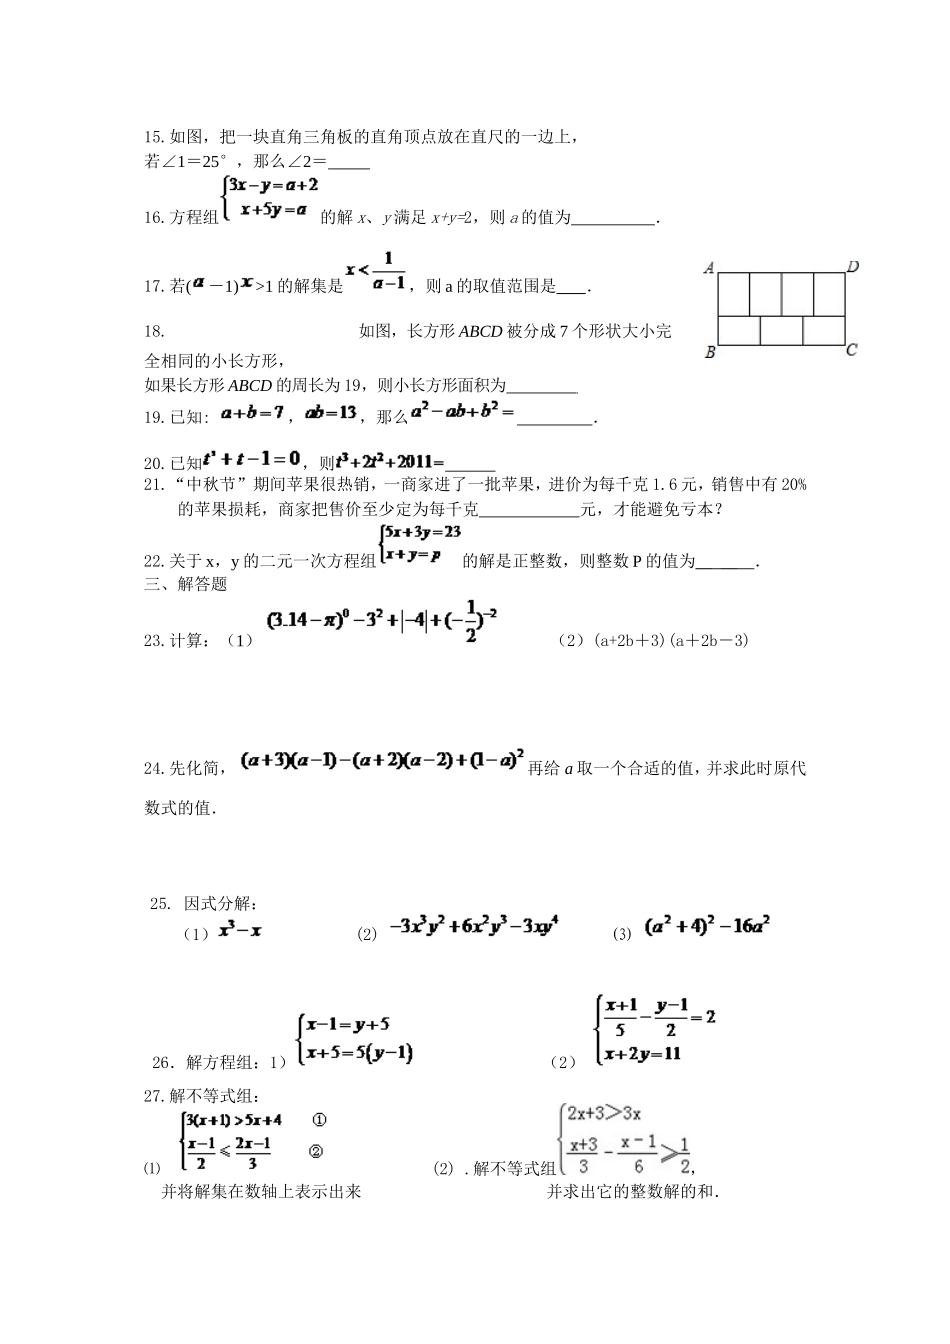 15.如图，把一块直角三角板的直角顶点放在直尺的一边上，
若∠1＝25°，那么∠2＝_____
16.方程组{3x－y=a+2 x+5y=a 的解 x、y 满足 x+y=2，则 a 的值为__________．
17.若(a－1)x>1 的解集是 x<1/(a−1)，则 a 的取值范围是____．
18. 如图，长方形 ABCD 被分成 7 个形状大小完
全相同的小长方形，
如果长方形 ABCD 的周长为 19，则小长方形面积为_________
A D
B C
19.已知： a+b=7，ab=13，那么a²−ab+b²= _________．
20.已知t²+t−1=0，则t³+2t²+2011=______
21.“中秋节”期间苹果很热销，一商家进了一批苹果，进价为每千克 1.6 元，销售中有 20%
的苹果损耗，商家把售价至少定为每千克____________元，才能避免亏本？
22.关于 x，y 的二元一次方程组{5x+3y=23 x+y=p 的解是正整数，则整数 P 的值为_______．
三、解答题
23.计算：（1） (3.14−π)⁰−3²+|−4|+(−1/2)⁻² （2）(a+2b＋3)(a＋2b－3)
24.先化简， (a+3)(a−1)−(a+2)(a−2)+(1−a)² 再给 a 取一个合适的值，并求此时原代
数式的值．
25. 因式分解：
（1）x³−x (2) −3x³y²+6x²y³−3xy⁴ (3) (a²+4)²−16a²
26．解方程组：1）{x−1=y+5 x+5=5(y−1) （2） {(x+1)/5−(y−1)/2=2 x+2y=11
27.解不等式组：
⑴ {3(x+1)>5x+4 ① (x−1)/2⩽(2x−1)/3 ② (2) .解不等式组{2x+3>3x (x+3)/3−(x−1)/6⩾1/2，
并将解集在数轴上表示出来 并求出它的整数解的和．